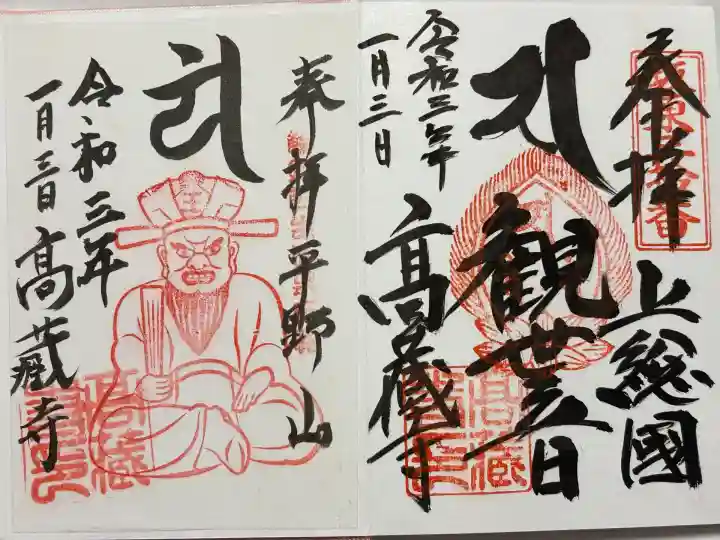 奉拝
上総國
観世音
高蔵寺
令和三年
一月三日
奉拝
平野山
令和三年
一月三日
高蔵寺